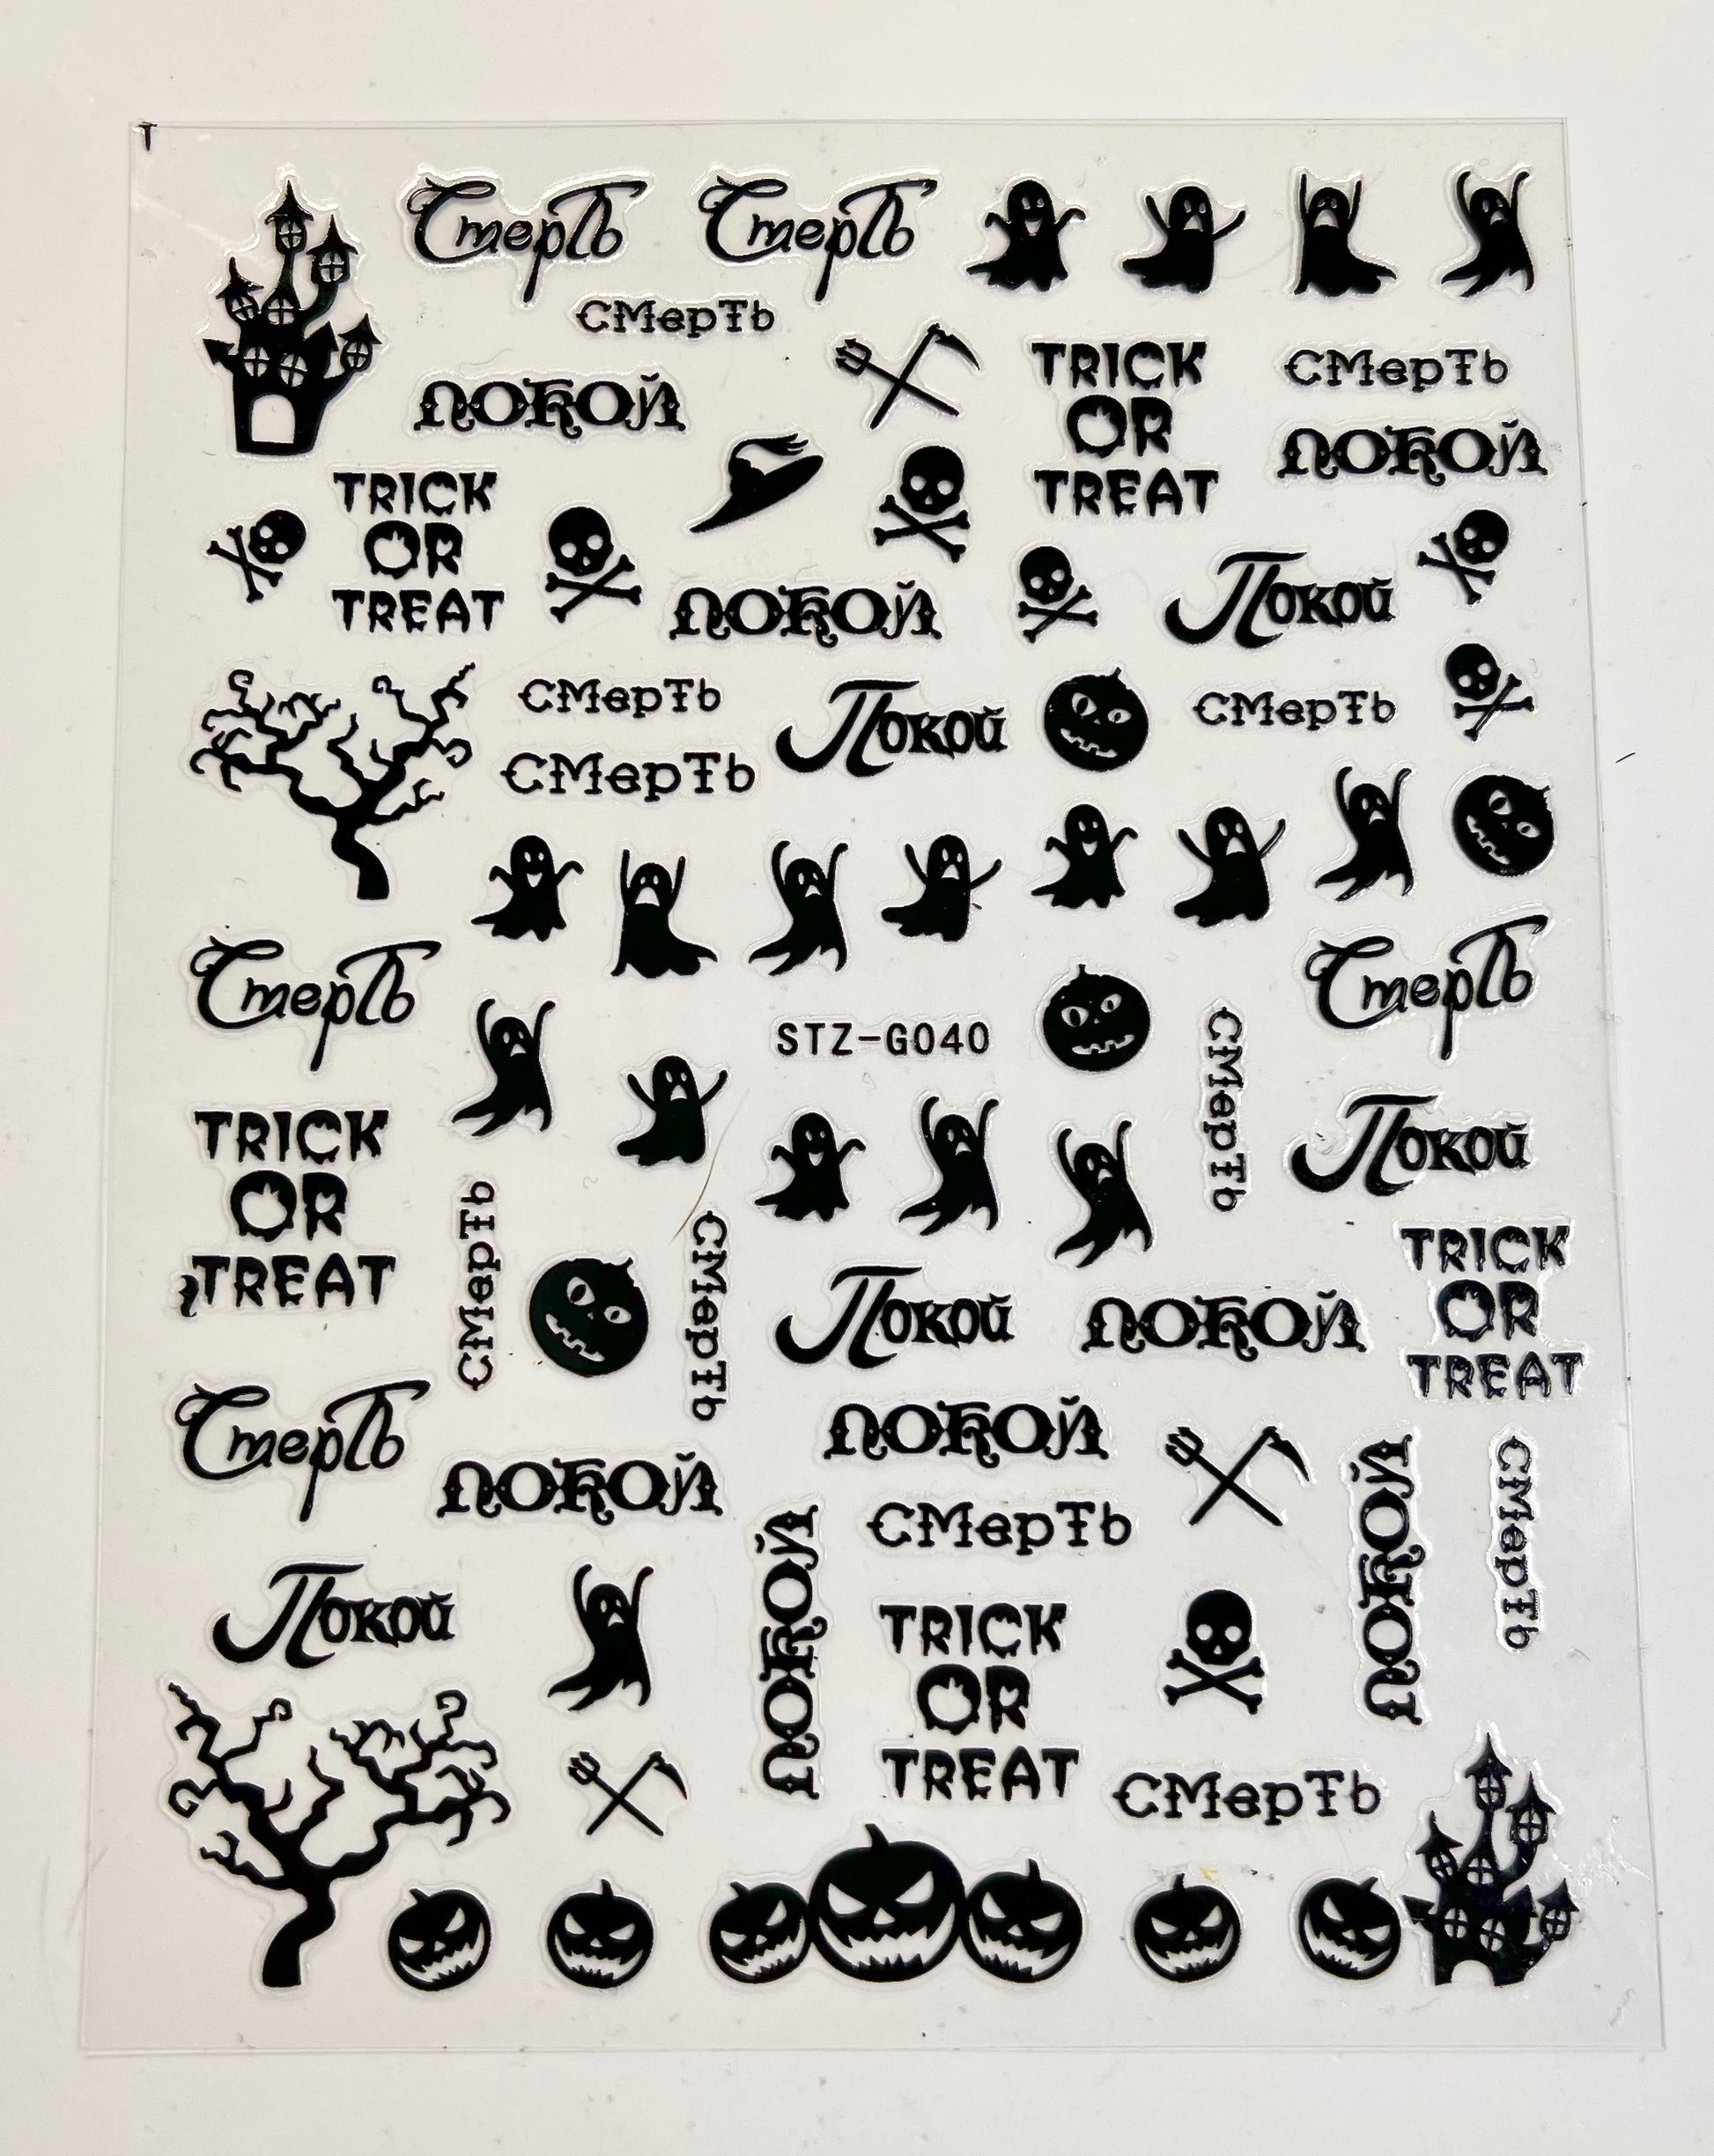 Смерть
Смерть
СМерТЬ
покой
TRICK
OR
TREAT
СМерТЬ
покой
TRICK
OR
TREAT
покой
Покой
СМерТЬ
Покой
СМерТЬ
СМерТЬ
Смерть
STZ-G040
Смерть
СМерТЬ
Покой
TRICK
OR
TREAT
СМерТЬ
СМерТЬ
Покой
покой
TRICK
OR
TREAT
Смерть
покой
покой
покой
СМерТЬ
покой
СМерТЬ
Покой
TRICK
OR
TREAT
СМерТЬ